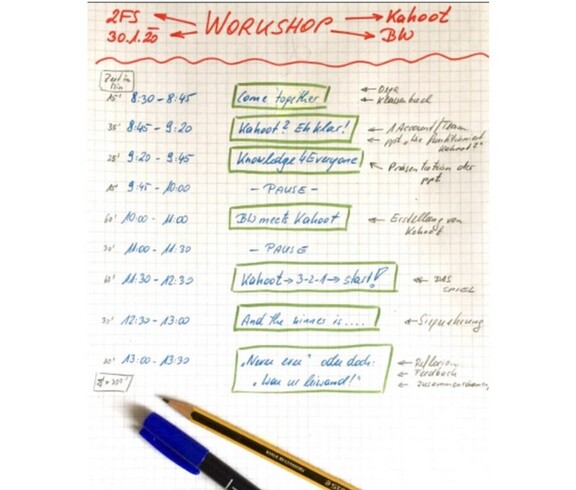 2FS WORKSHOP Kahoot
30.1.20 BW
Zeit in Min
15' 8:30 - 8:45 Come together! Orga
Klassenbuch
35' 8:45 - 9:20 Kahoot? Eh klar! 1 Account/Team
ppt „Wie funktioniert
Kahoot?"
25' 9:20 - 9:45 Knowledge 4 Everyone Präsentation der
ppt.
15' 9:45 - 10:00 - PAUSE -
60' 10:00 - 11:00 BW meets Kahoot Erstellung von
Kahoot
30' 11:00 - 11:30 - PAUSE
60' 11:30 - 12:30 Kahoot → 3-2-1 → start! DAS
SPIEL
30' 12:30 - 13:00 And the winner is..... Siegerehrung
30' 13:00 - 13:30 „Never ever" oder doch: Reflexion
Feedback
„War ur leiwand!" Zusammenräumen